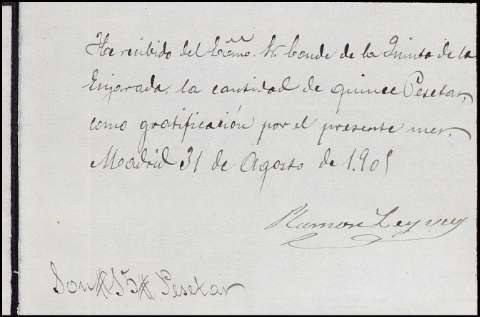 He recibido del Excmo. Sr Conde de la Quinta de la
Enjarada la cantidad de quince Pesetas,
como gratificación por el presente mes.
Madrid 31 de Agosto de 1.905
Ramon
Son #15# Pesetas